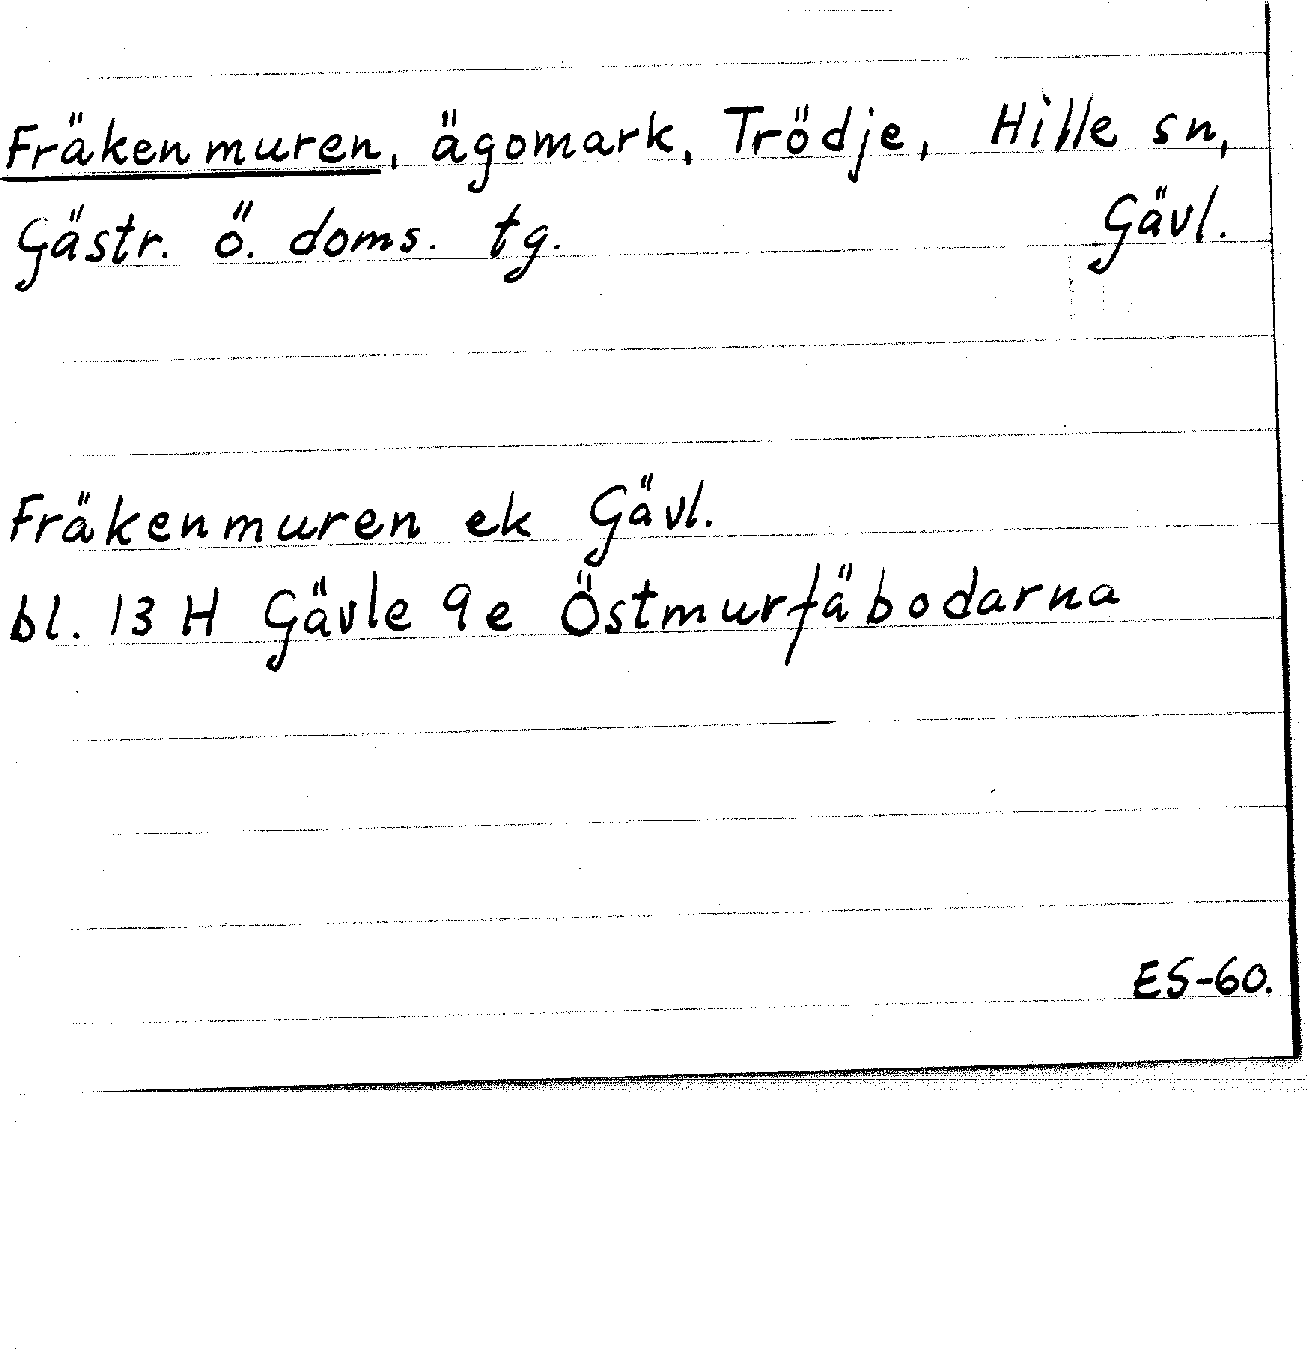 Fräkenmuren, ägomark, Trödje, Hille sn,
Gästr. ö. doms. tg. Gävl.
Fräkenmuren ek Gävl.
bl. 13 H Gävle 9e Östmurfäbodarna
ES-60.